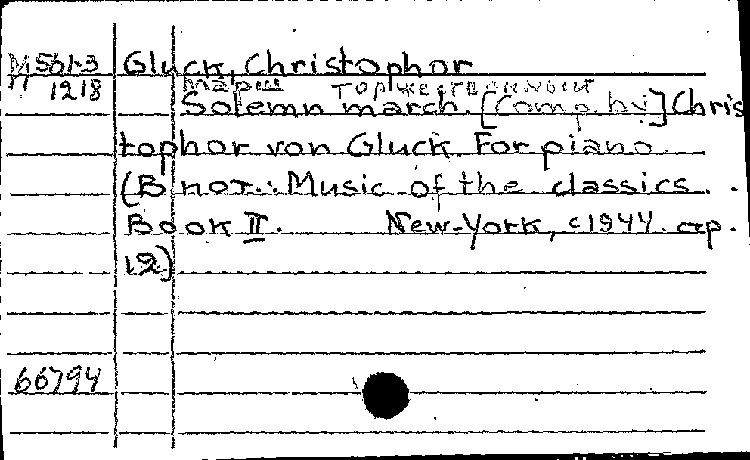 M561-3 Gluck, Christophor
M 1218 Марш торжественный
Solemn march. [Comp. by] Chris
tophor von Gluck. For piano.
(В нот.: Music of the classics.
Book II. New-York, c1944. стр.
12)
66794